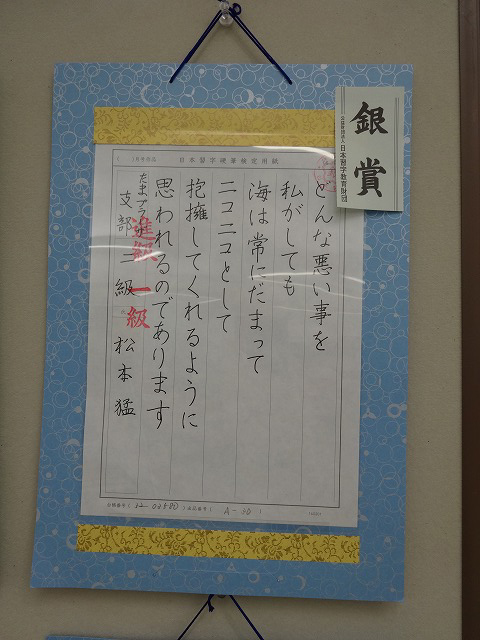 銀賞
公益財団法人 日本習字教育財団
( )月号作品 日本習字硬筆検定用紙
どんな悪い事を
私がしても
海は常にだまって
ニコニコとして
抱擁してくれるように
思われるのであります
たまプラーザ
支部 二級 松本猛
進級 一級
A-50